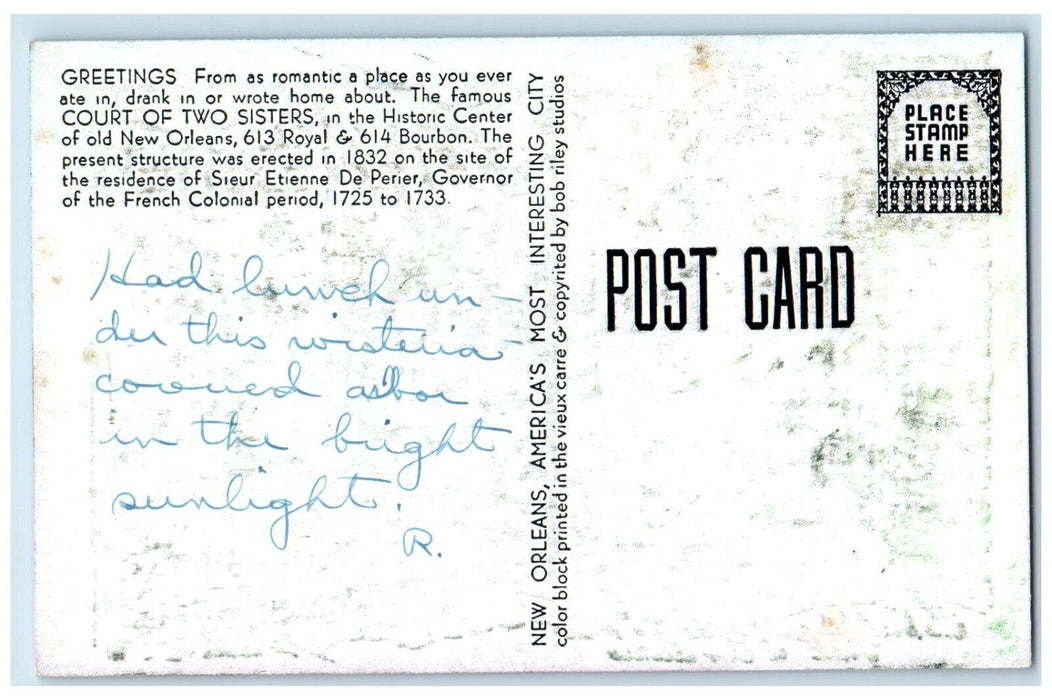 GREETINGS From as romantic a place as you ever
ate in, drank in or wrote home about. The famous
COURT OF TWO SISTERS, in the Historic Center
of old New Orleans, 613 Royal & 614 Bourbon. The
present structure was erected in 1832 on the site of
the residence of Sieur Etienne De Perier, Governor
of the French Colonial period, 1725 to 1733.
Had lunch un-
der this wisteria-
covered arbor
in the bright
sunlight.
R.
NEW ORLEANS, AMERICA'S MOST INTERESTING CITY
color block printed in the vieux carre & copyrited by bob riley studios
PLACE
STAMP
HERE
POST CARD